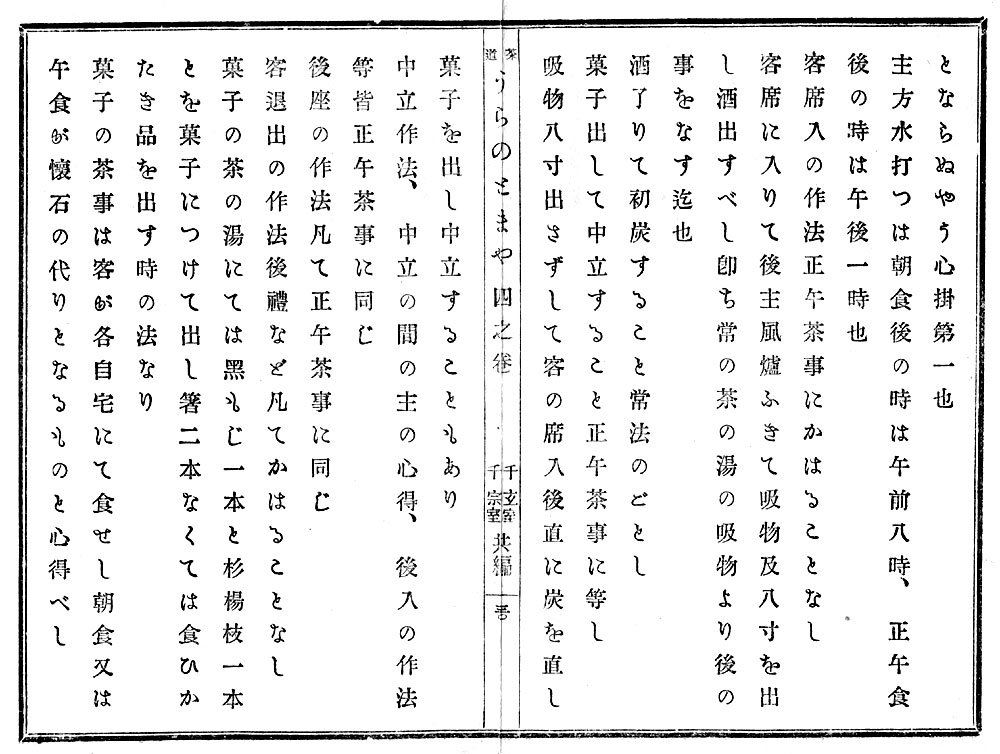 とならぬやう心掛第一也
主方水打つは朝食後の時は午前八時、正午食
後の時は午後一時也
客席入の作法正午茶事にかはることなし
客席に入りて後主風爐ふきて吸物及八寸を出
し酒出すべし卽ち常の茶の湯の吸物より後の
事をなす迄也
酒了りて初炭すること常法のごとし
菓子出して中立すること正午茶事に等し
吸物八寸出さずして客の席入後直に炭を直し
茶道うらのとまや四之卷
千玄室
千宗室
共編
菓子を出し中立することもあり
中立作法、中立の間の主の心得、後入の作法
等皆正午茶事に同じ
後座の作法凡て正午茶事に同じ
客退出の作法後禮など凡てかはることなし
菓子の茶の湯にては黑もじ一本と杉楊枝一本
とを菓子につけて出し箸二本なくては食ひか
たき品を出す時の法なり
菓子の茶事は客が各自宅にて食せし朝食又は
午食が懷石の代りとなるものと心得べし